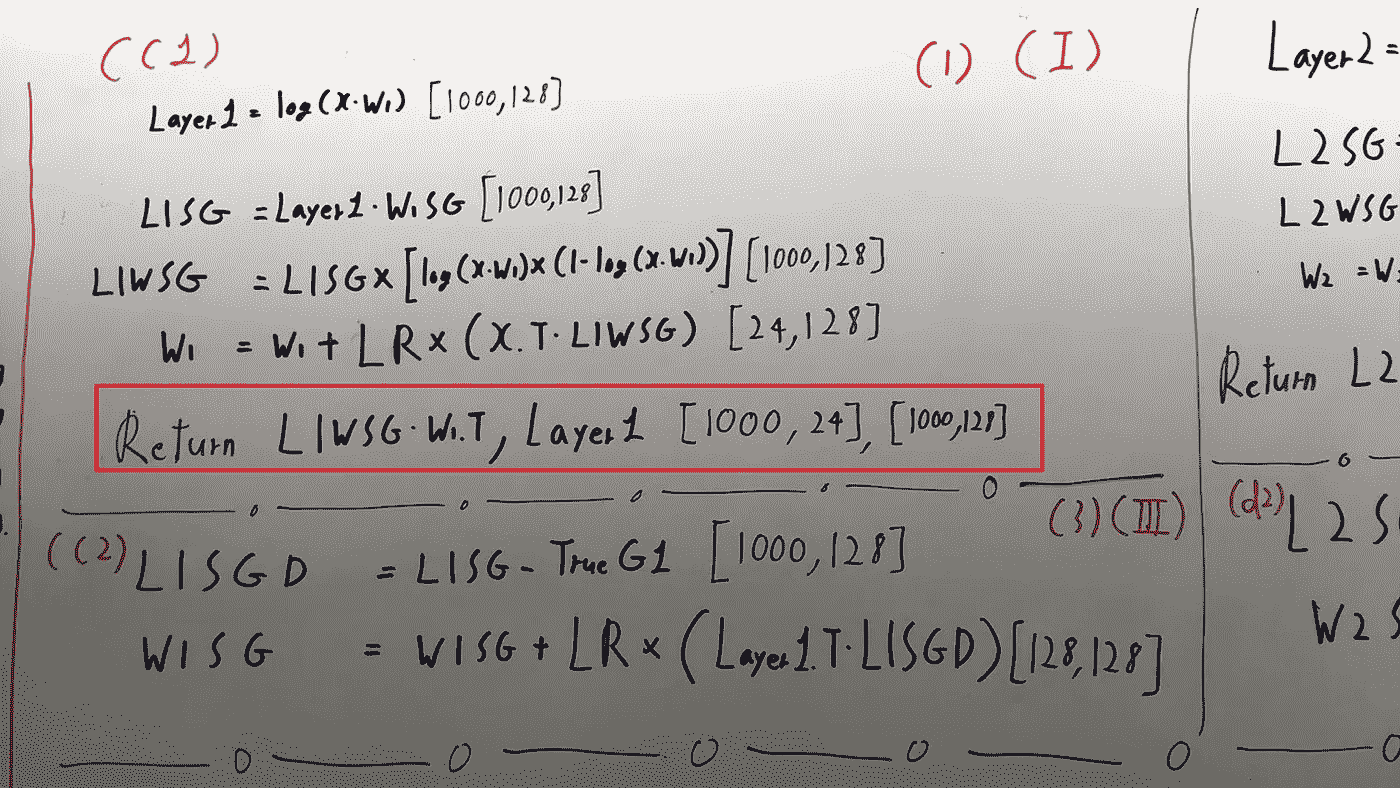 ((1) (1) (I)
Layer1 = log(X·W1) [1000,128]
L1SG = Layer1·W1SG [1000,128]
L1WSG = L1SG × [log(X·W1)×(1-log(X·W1))] [1000,128]
W1 = W1 + LR × (X.T·L1WSG) [24,128]
Return L1WSG·W1.T, Layer1 [1000,24], [1000,128]
(3) (III)
((2) L1SGD = L1SG - TrueG1 [1000,128]
W1SG = W1SG + LR × (Layer1.T·L1SGD) [128,128]
Layer2 =
L2SG =
L2WSG
W2 = W
Return L2
(d2) L2S
W2S